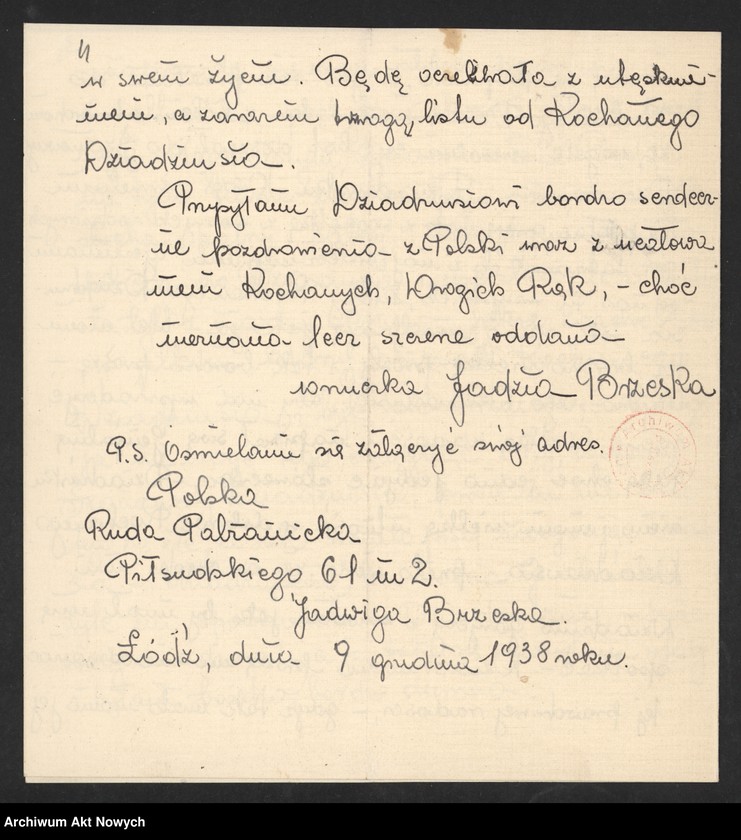 4
w swem życiu. Będę oczekiwała z utęsknie-
niem, a zarazem trwogą, listu od Kochanego
Dziadziusia.
Przysyłam Dziadziusiowi bardzo serdecz-
ne pozdrowienia z Polski wraz z ucałowa
niem Kochanych, Drogich Rąk, - choć
nieznana lecz szczerze oddana
wnuczka Jadzia Brzeska
P.S. Ośmielam się załączyć swój adres.
Polska
Ruda Pabianicka
Piłsudskiego 61 m 2.
Jadwiga Brzeska.
Łódź, dnia 9 grudnia 1938 roku.
Archiwum Akt Nowych